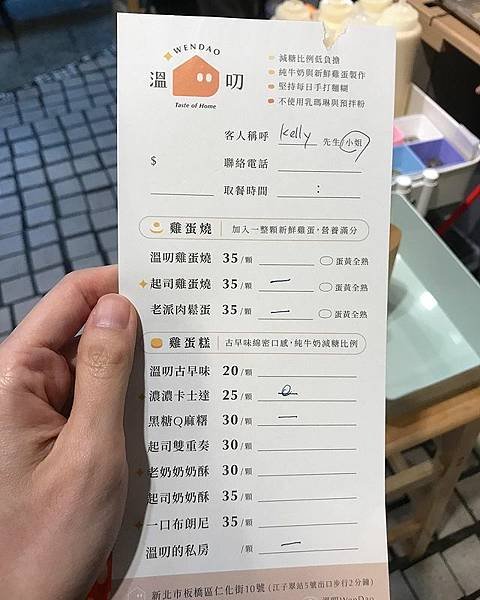 WENDAO
溫 叨
Taste of Home
減糖比例低負擔
純牛奶與新鮮雞蛋製作
堅持每日手打麵糊
不使用乳瑪琳與預拌粉
客人稱呼 Kelly 先生 小姐
$ 聯絡電話
取餐時間 :
雞蛋燒 加入一整顆新鮮雞蛋,營養滿分
溫叨雞蛋燒 35/顆 蛋黃全熟
起司雞蛋燒 35/顆 一 蛋黃全熟
老派肉鬆蛋 35/顆 一 蛋黃全熟
雞蛋糕 古早味綿密口感,純牛奶減糖比例
溫叨古早味 20/顆
濃濃卡士達 25/顆
黑糖Q麻糬 30/顆 一
起司雙重奏 30/顆
老奶奶奶酥 30/顆
起司奶奶酥 35/顆
一口布朗尼 35/顆
溫叨的私房 /顆 一
新北市板橋區仁化街10號 (江子翠站5號出口步行2分鐘)
溫叨WenDao